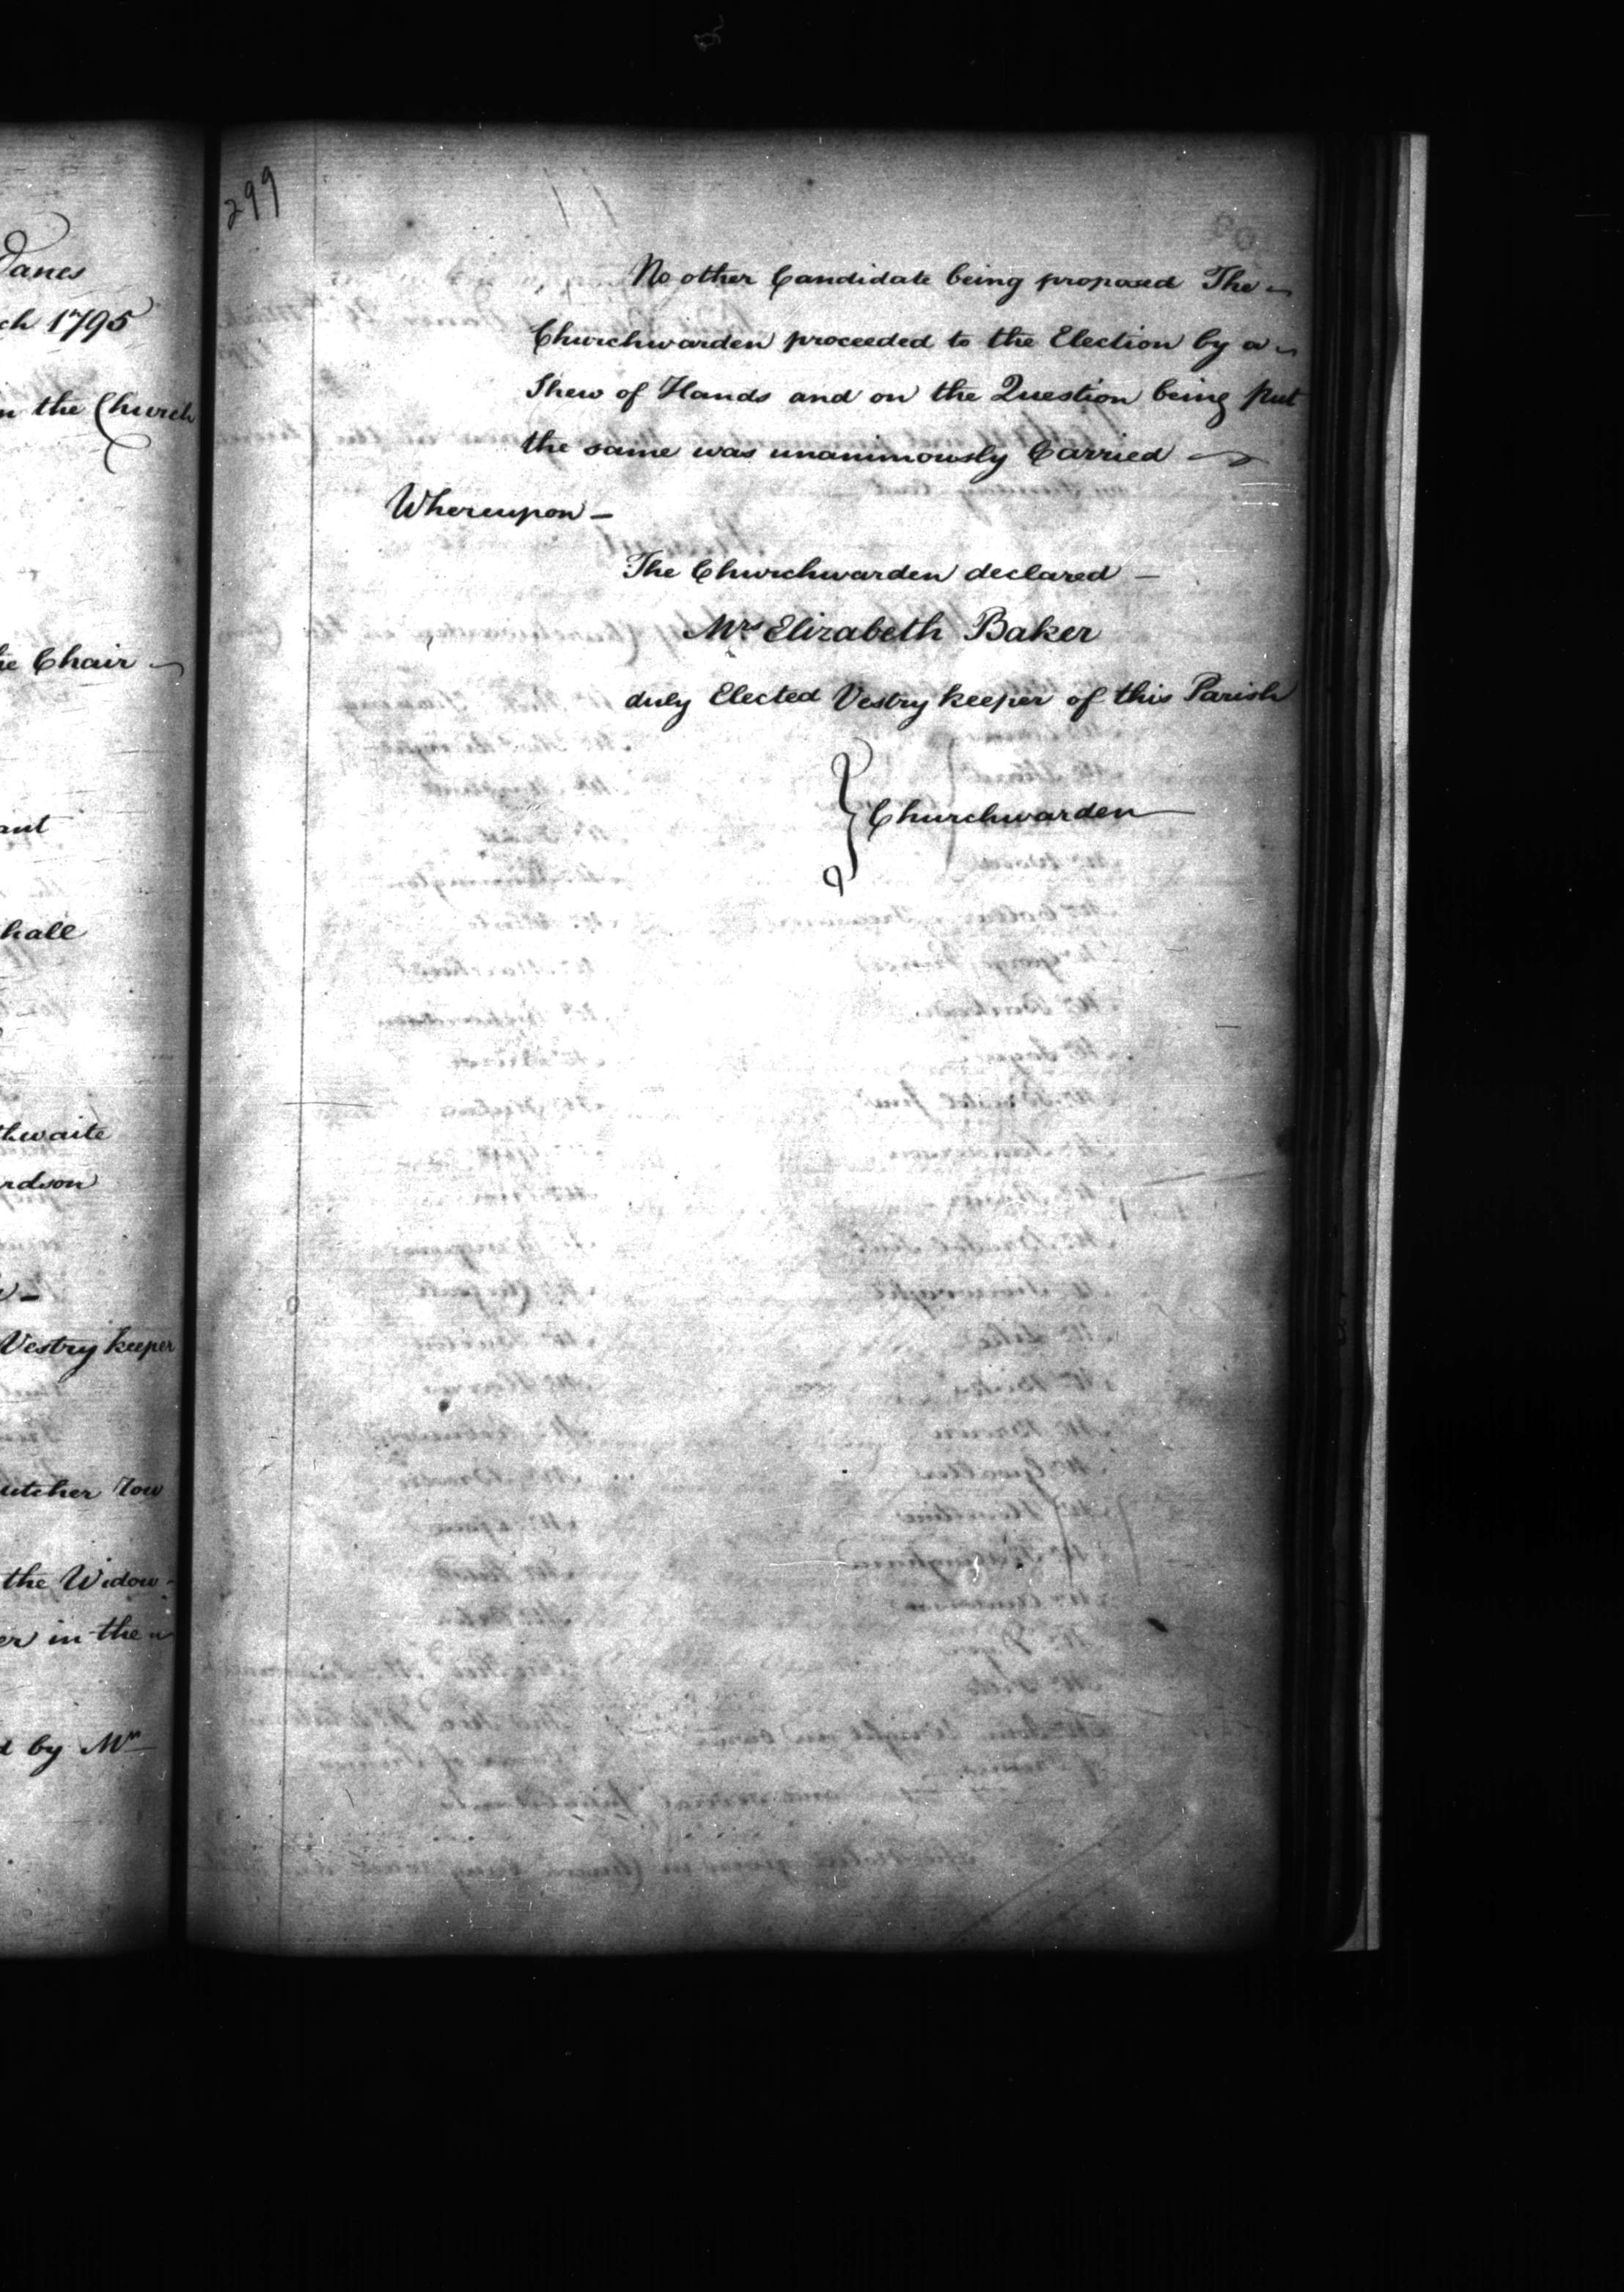 Danes
ch 1795
n the Church
he Chair
ant
hall
thwaite
rdson
Vestry keeper
utcher Row
the Widow
er in the
d by Mr
299
No other Candidate being proposed The
Churchwarden proceeded to the Election by a
Shew of Hands and on the Question being put
the same was unanimously Carried
Whereupon —
The Churchwarden declared —
Mrs Elizabeth Baker
duly Elected Vestry keeper of this Parish
} Churchwarden